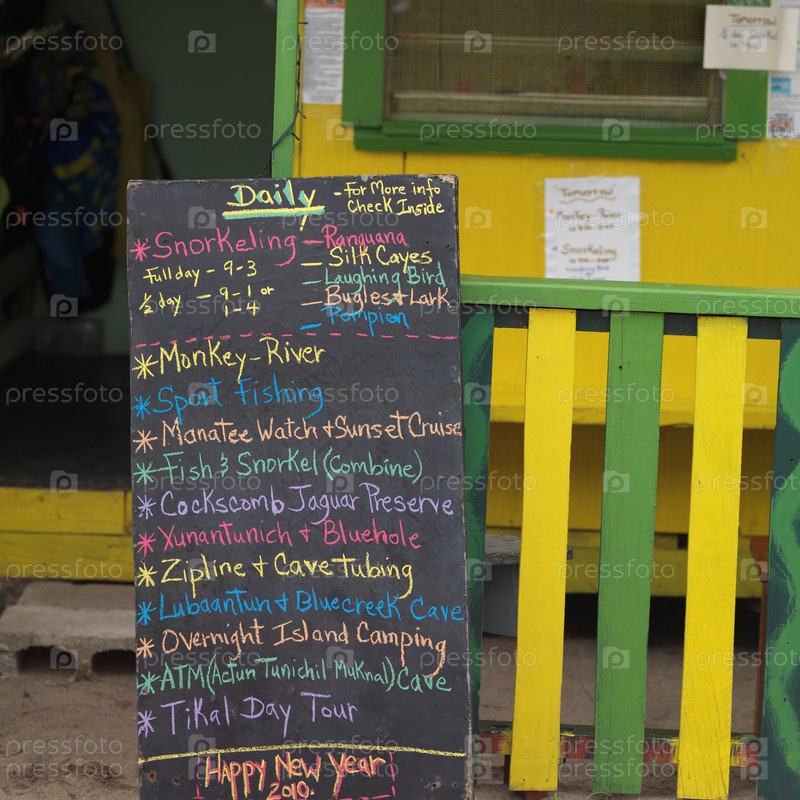 Tomorrow
Daily
-For More info
Check Inside
Tomorrow
*Snorkeling - Ranguana
Full day - 9-3
- Silk Cayes
- Laughing Bird
½ day - 9-1 or
1-4
- Bugles & Lark
- Pompion
Snorkeling
*Monkey-River
*Sport Fishing
*Manatee Watch & Sunset Cruise
*Fish & Snorkel (Combine)
*Cockscomb Jaguar Preserve
*Xunantunich & Bluehole
*Zipline & Cave tubing
*Lubaantun & Bluecreek Cave
*Overnight Island Camping
*ATM (Actun Tunichil Muknal) Cave
*Tikal Day Tour
Happy New Year
2010.
pressfoto